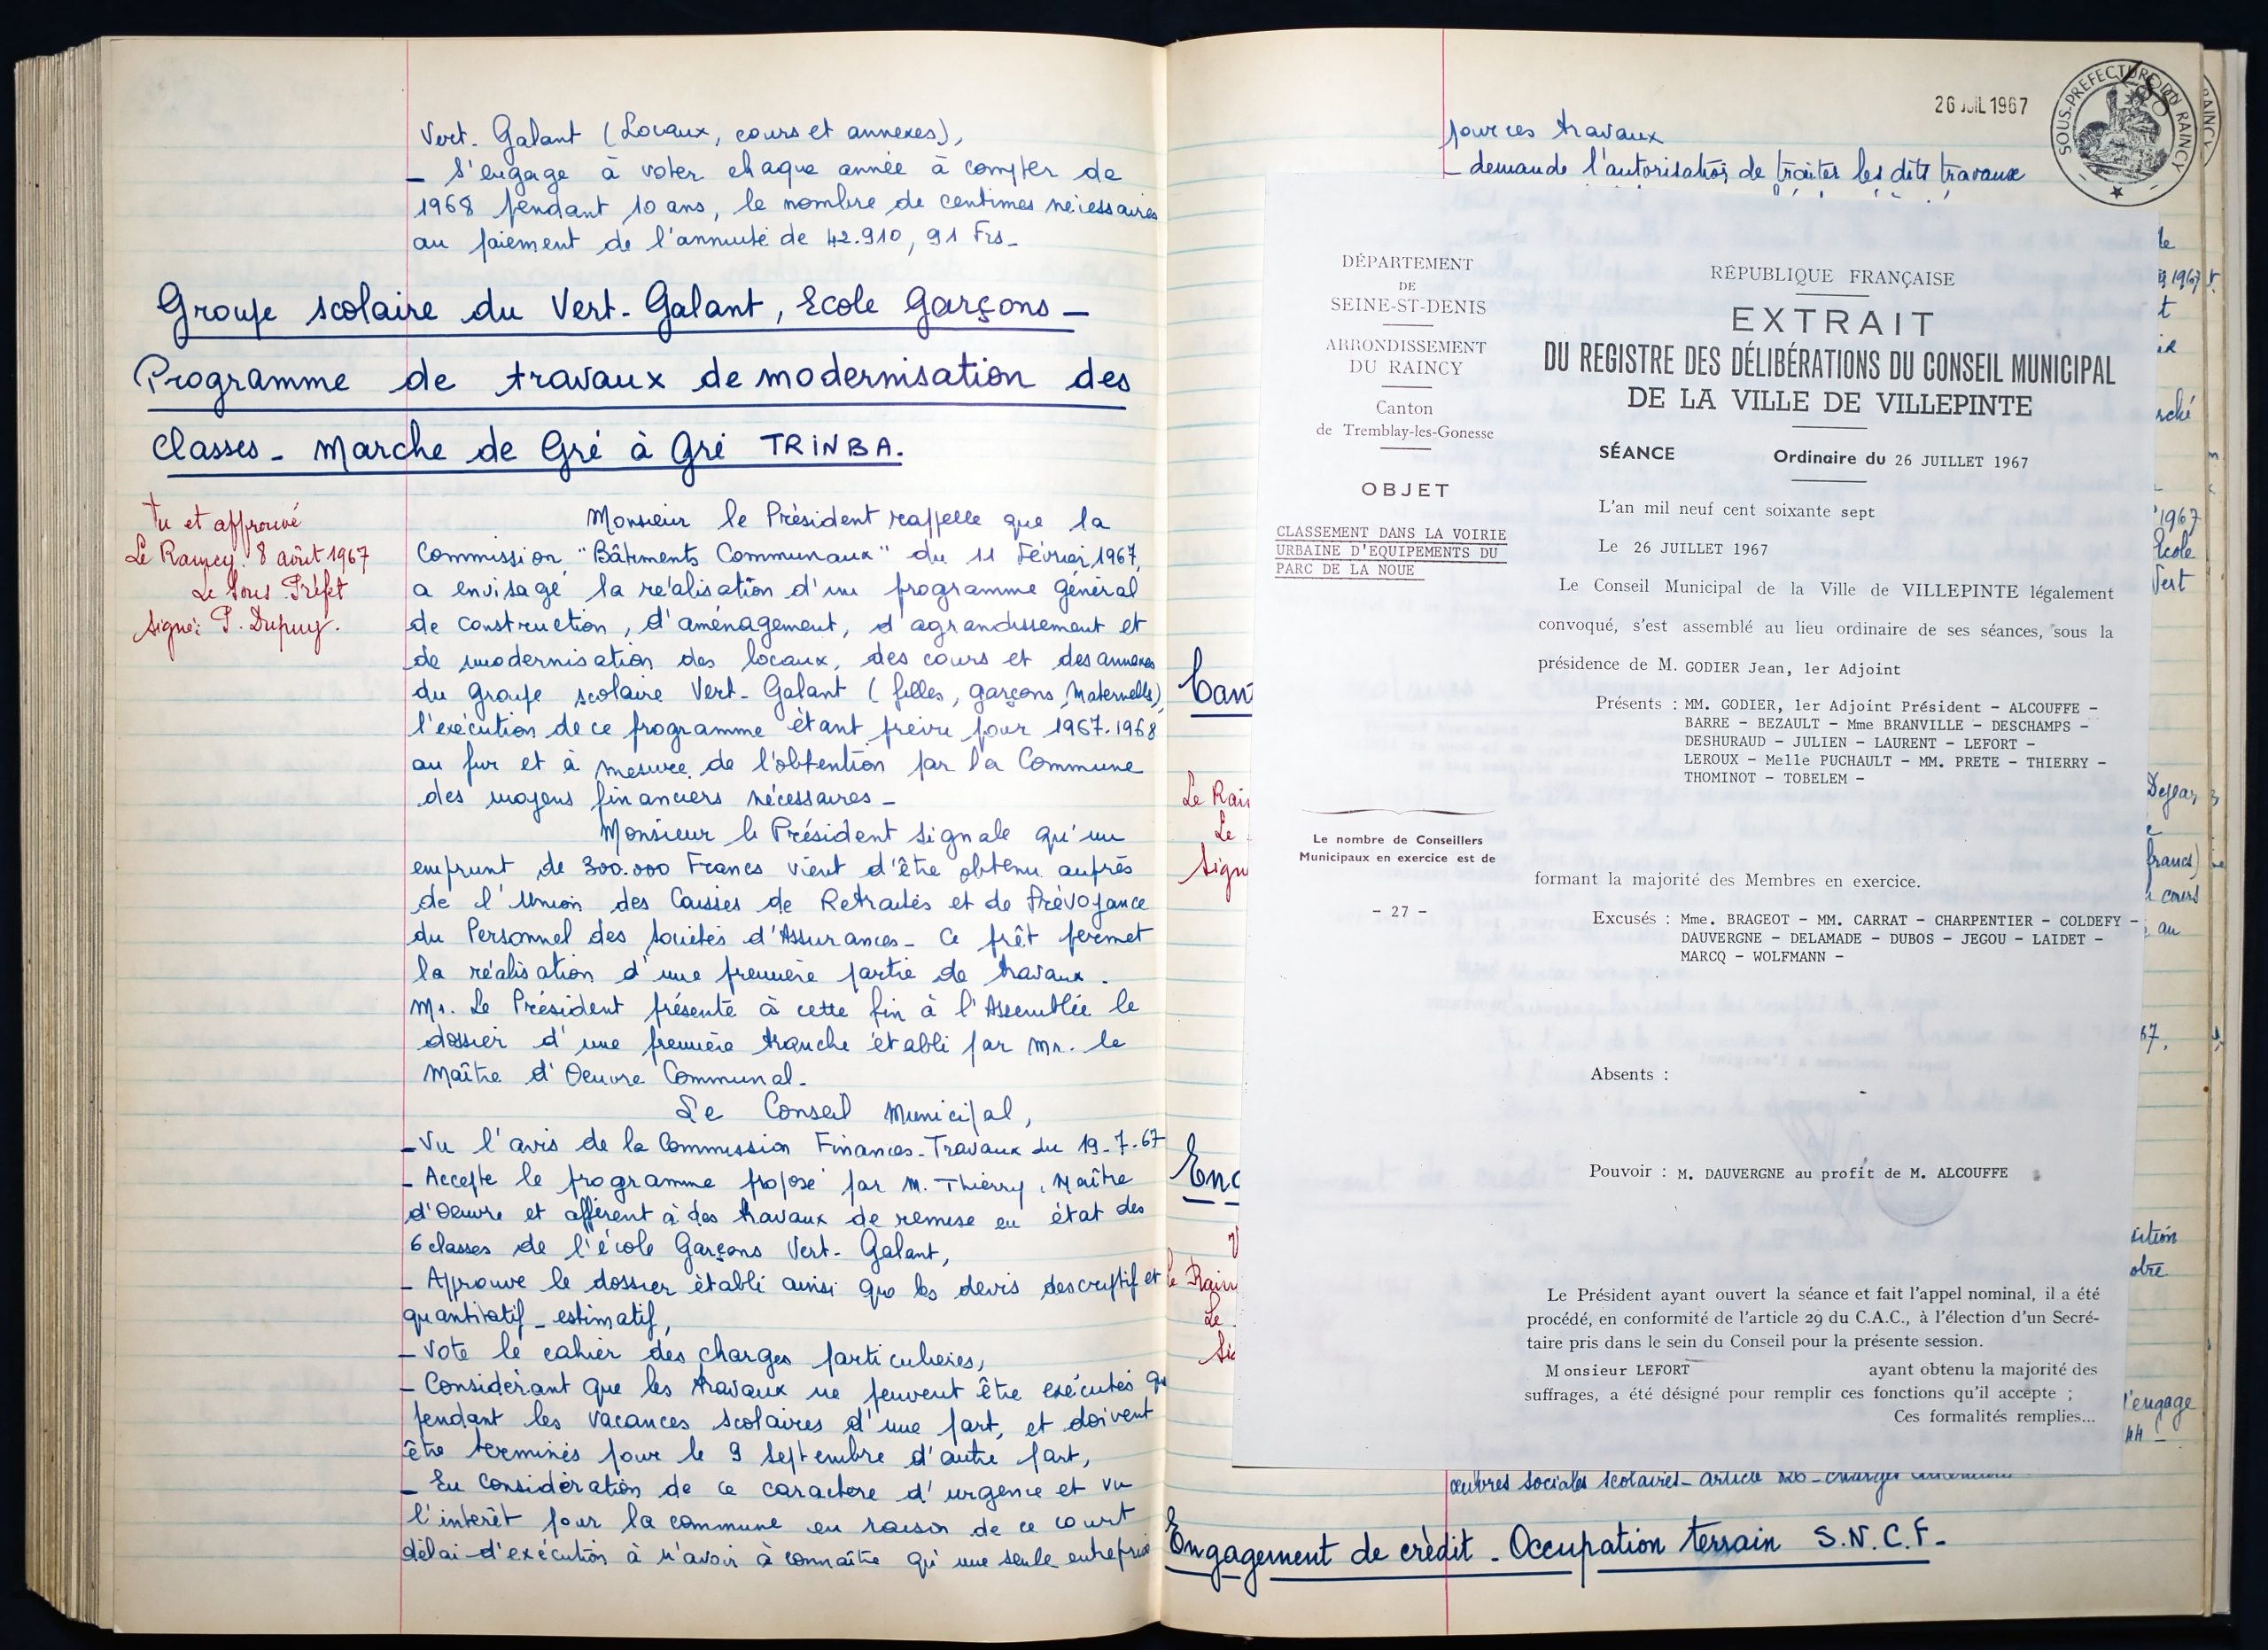 Vert-Galant (Locaux, cours et annexes),
- S'engage à voter chaque année à compter de
1968 pendant 10 ans, le nombre de centimes nécessaires
au paiement de l'annuité de 42.910,91 Frs-
Groupe scolaire du Vert-Galant, Ecole Garçons -
Programme de travaux de modernisation des
Classes - Marche de Gré à Gré TRINBA.
Vu et approuvé
Le Raincy. 8 août 1967
Le Sous Préfet
Signé: P. Dupuy.
Monsieur le Président rappelle que la
Commission "Bâtiments Communaux" du 11 Février 1967,
a envisagé la réalisation d'un programme général
de construction, d'aménagement, d'agrandissement et
de modernisation des locaux, des cours et des annexes
du groupe scolaire Vert-Galant (filles, garçons, Maternelle),
l'exécution de ce programme étant prévu pour 1967-1968
au fur et à mesure de l'obtention par la Commune
des moyens financiers nécessaires -
Monsieur le Président signale qu'un
emprunt de 300.000 Francs vient d'être obtenu auprès
de l'Union des Caisses de Retraites et de Prévoyance
du Personnel des Sociétés d'Assurances - Ce prêt permet
la réalisation d'une première partie de travaux.
Mr. Le Président présente à cette fin à l'Assemblée le
dossier d'une première tranche établi par Mr. le
Maître d'Oeuvre Communal -
Le Conseil Municipal,
- Vu l'avis de la Commission Finances-Travaux du 19-7-67
- Accepte le programme proposé par M. Thierry, Maître
d'Oeuvre et afférent à des travaux de remise en état des
6 classes de l'école Garçons Vert-Galant,
- Approuve le dossier établi ainsi que les devis descriptif et
quantitatif - estimatif,
- Vote le cahier des charges particulières,
- Considérant que les travaux ne peuvent être exécutés qu
pendant les vacances scolaires d'une part, et doivent
être terminés pour le 9 septembre d'autre part,
- En considération de ce caractère d'urgence et vu
l'intérêt pour la commune en raison de ce court
délai d'exécution à n'avoir à connaître qu'une seule entreprise
26 JUIL 1967
SOUS-PREFECTURE DU RAINCY
188
pour ces travaux
- demande l'autorisation de traiter les dits travaux
DÉPARTEMENT
DE
SEINE-ST-DENIS
ARRONDISSEMENT
DU RAINCY
Canton
de Tremblay-les-Gonesse
OBJET
CLASSEMENT DANS LA VOIRIE
URBAINE D'EQUIPEMENTS DU
PARC DE LA NOUE
Le nombre de Conseillers
Municipaux en exercice est de
- 27 -
RÉPUBLIQUE FRANÇAISE
EXTRAIT
DU REGISTRE DES DÉLIBÉRATIONS DU CONSEIL MUNICIPAL
DE LA VILLE DE VILLEPINTE
SÉANCE Ordinaire du 26 JUILLET 1967
L'an mil neuf cent soixante sept
Le 26 JUILLET 1967
Le Conseil Municipal de la Ville de VILLEPINTE légalement
convoqué, s'est assemblé au lieu ordinaire de ses séances, sous la
présidence de M. GODIER Jean, 1er Adjoint
Présents : MM. GODIER, 1er Adjoint Président - ALCOUFFE -
BARRE - BEZAULT - Mme BRANVILLE - DESCHAMPS -
DESHURAUD - JULIEN - LAURENT - LEFORT -
LEROUX - Melle PUCHAULT - MM. PRETE - THIERRY -
THOMINOT - TOBELEM -
formant la majorité des Membres en exercice.
Excusés : Mme. BRAGEOT - MM. CARRAT - CHARPENTIER - COLDEFY -
DAUVERGNE - DELAMADE - DUBOS - JEGOU - LAIDET -
MARCQ - WOLFMANN -
Absents :
Pouvoir : M. DAUVERGNE au profit de M. ALCOUFFE
Le Président ayant ouvert la séance et fait l'appel nominal, il a été
procédé, en conformité de l'article 29 du C.A.C., à l'élection d'un Secré-
taire pris dans le sein du Conseil pour la présente session.
Monsieur LEFORT ayant obtenu la majorité des
suffrages, a été désigné pour remplir ces fonctions qu'il accepte ;
Ces formalités remplies...
oeuvres sociales scolaires - article
Engagement de crédit - Occupation terrain S.N.C.F -